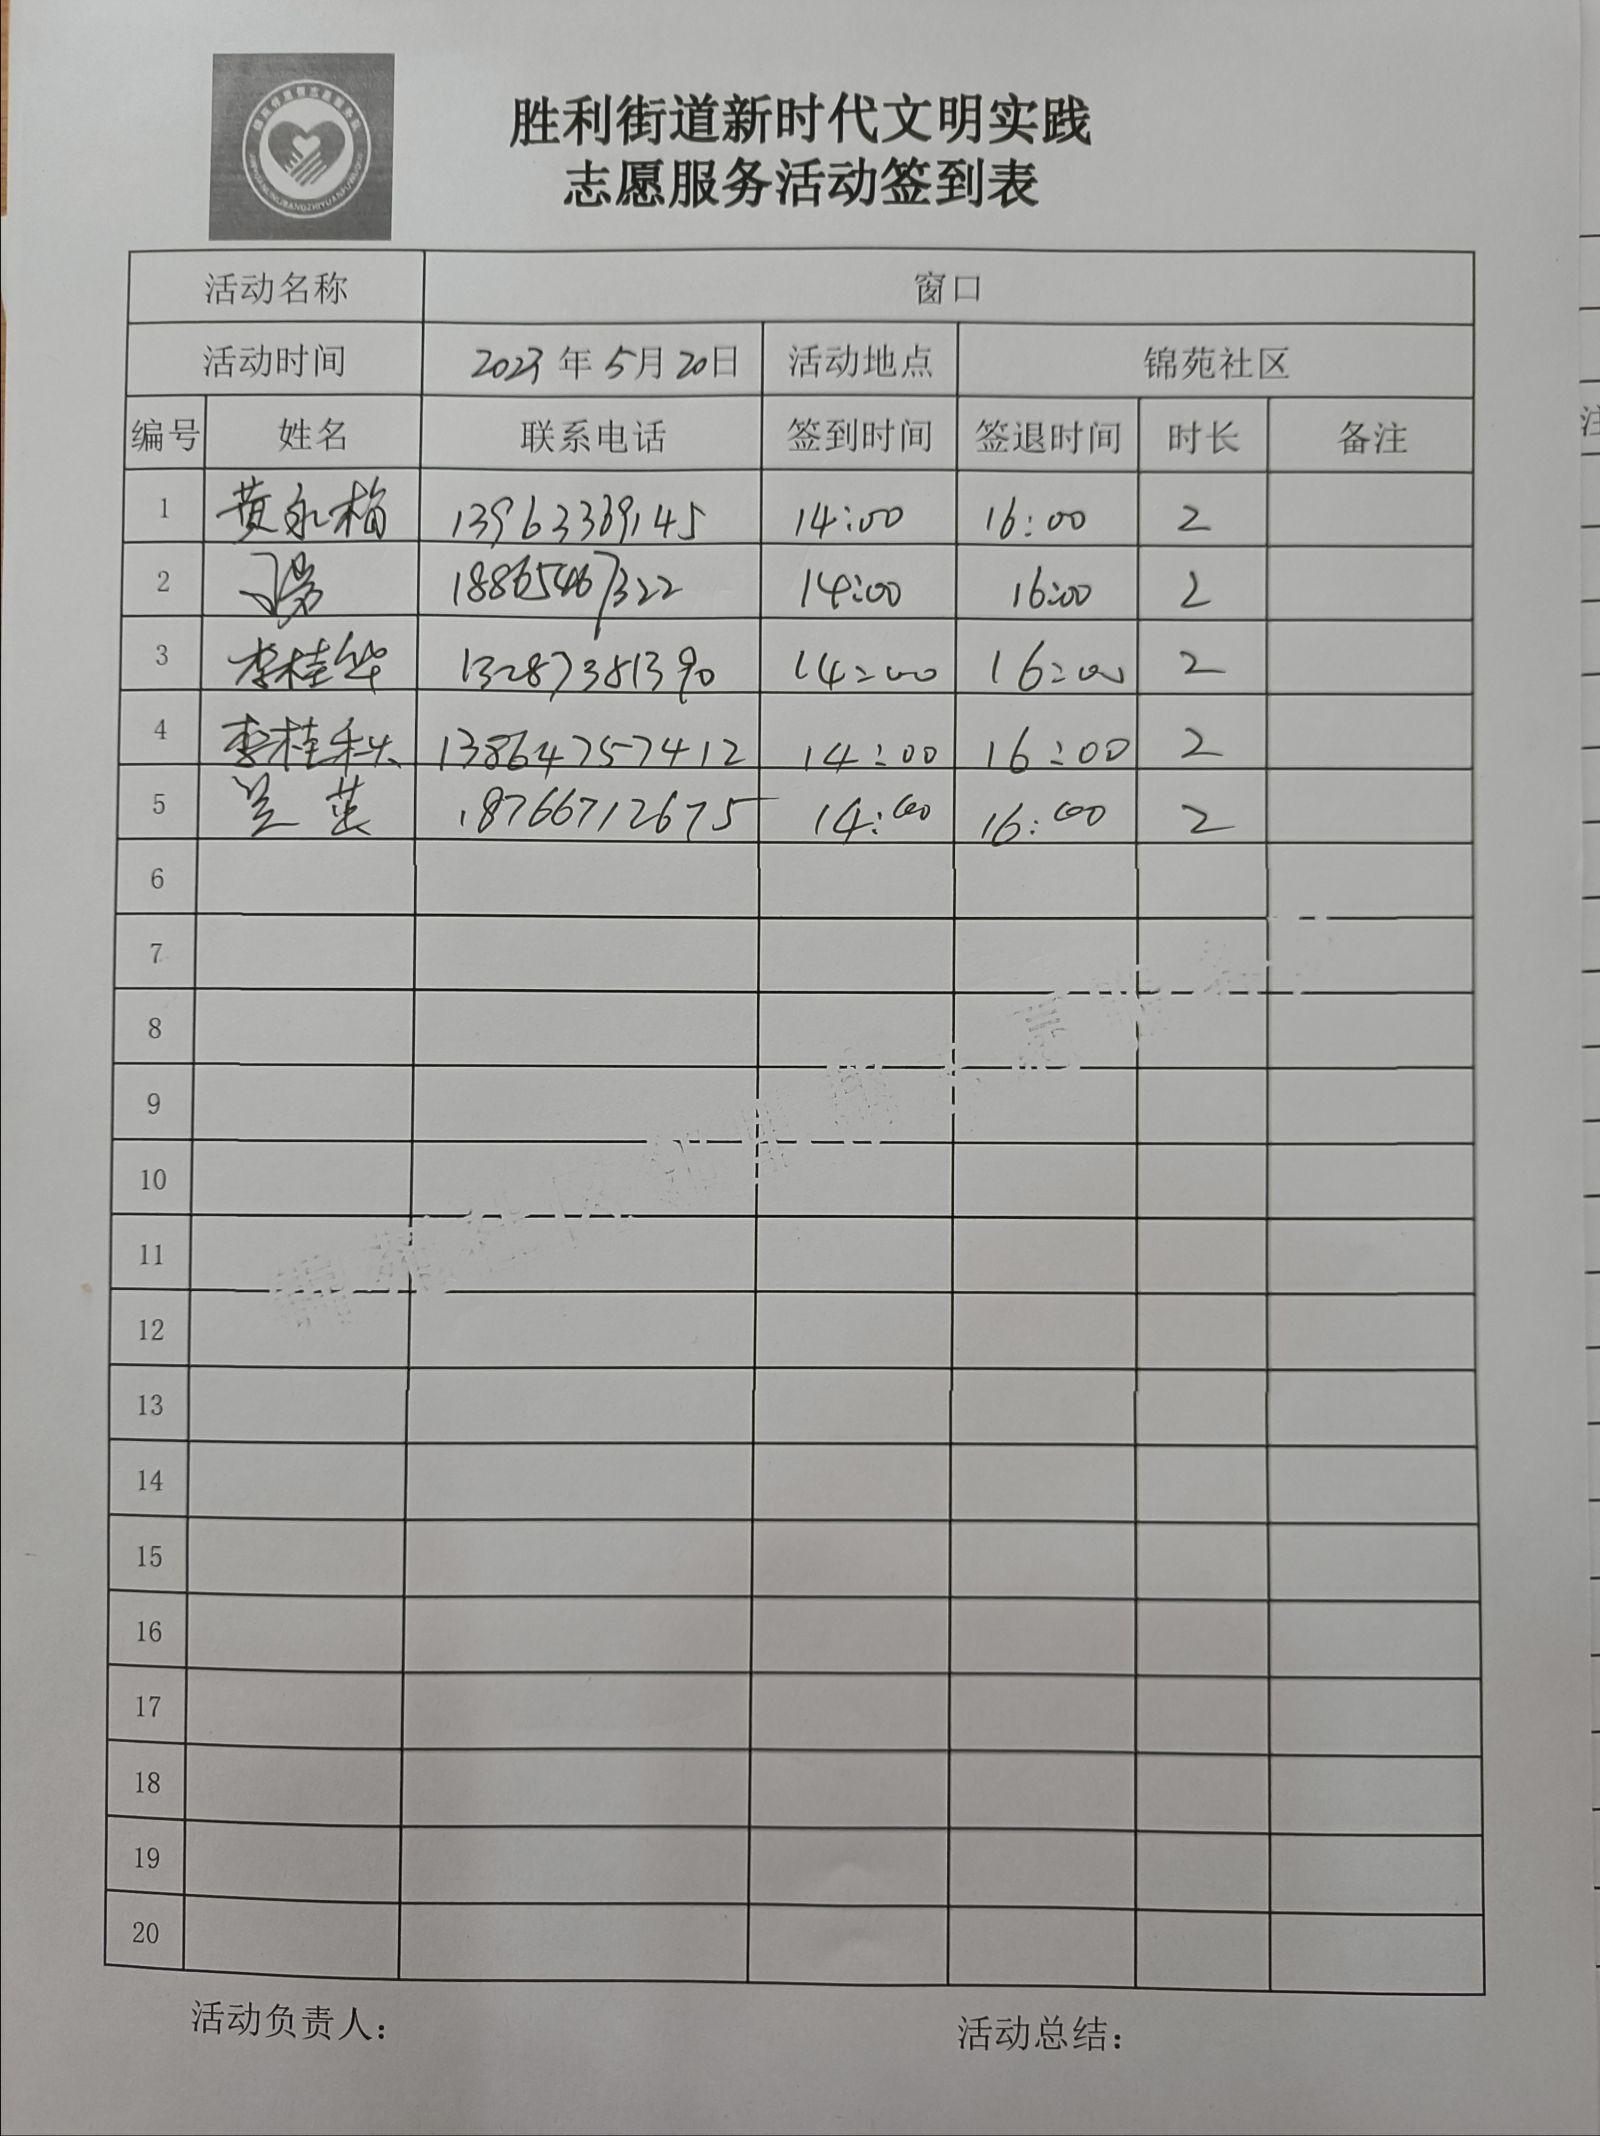 胜利街道新时代文明实践
志愿服务活动签到表
活动名称 窗口
活动时间 2023年5月20日 活动地点 锦苑社区
编号 姓名 联系电话 签到时间 签退时间 时长 备注
1 黄永梅 13963369145 14:00 16:00 2
2 18865467322 14:00 16:00 2
3 李桂华 13287381390 14:00 16:00 2
4 李桂秋 13864757412 14:00 16:00 2
5 兰英 18766712675 14:00 16:00 2
6
7
8
9
10
11
12
13
14
15
16
17
18
19
20
活动负责人：
活动总结：